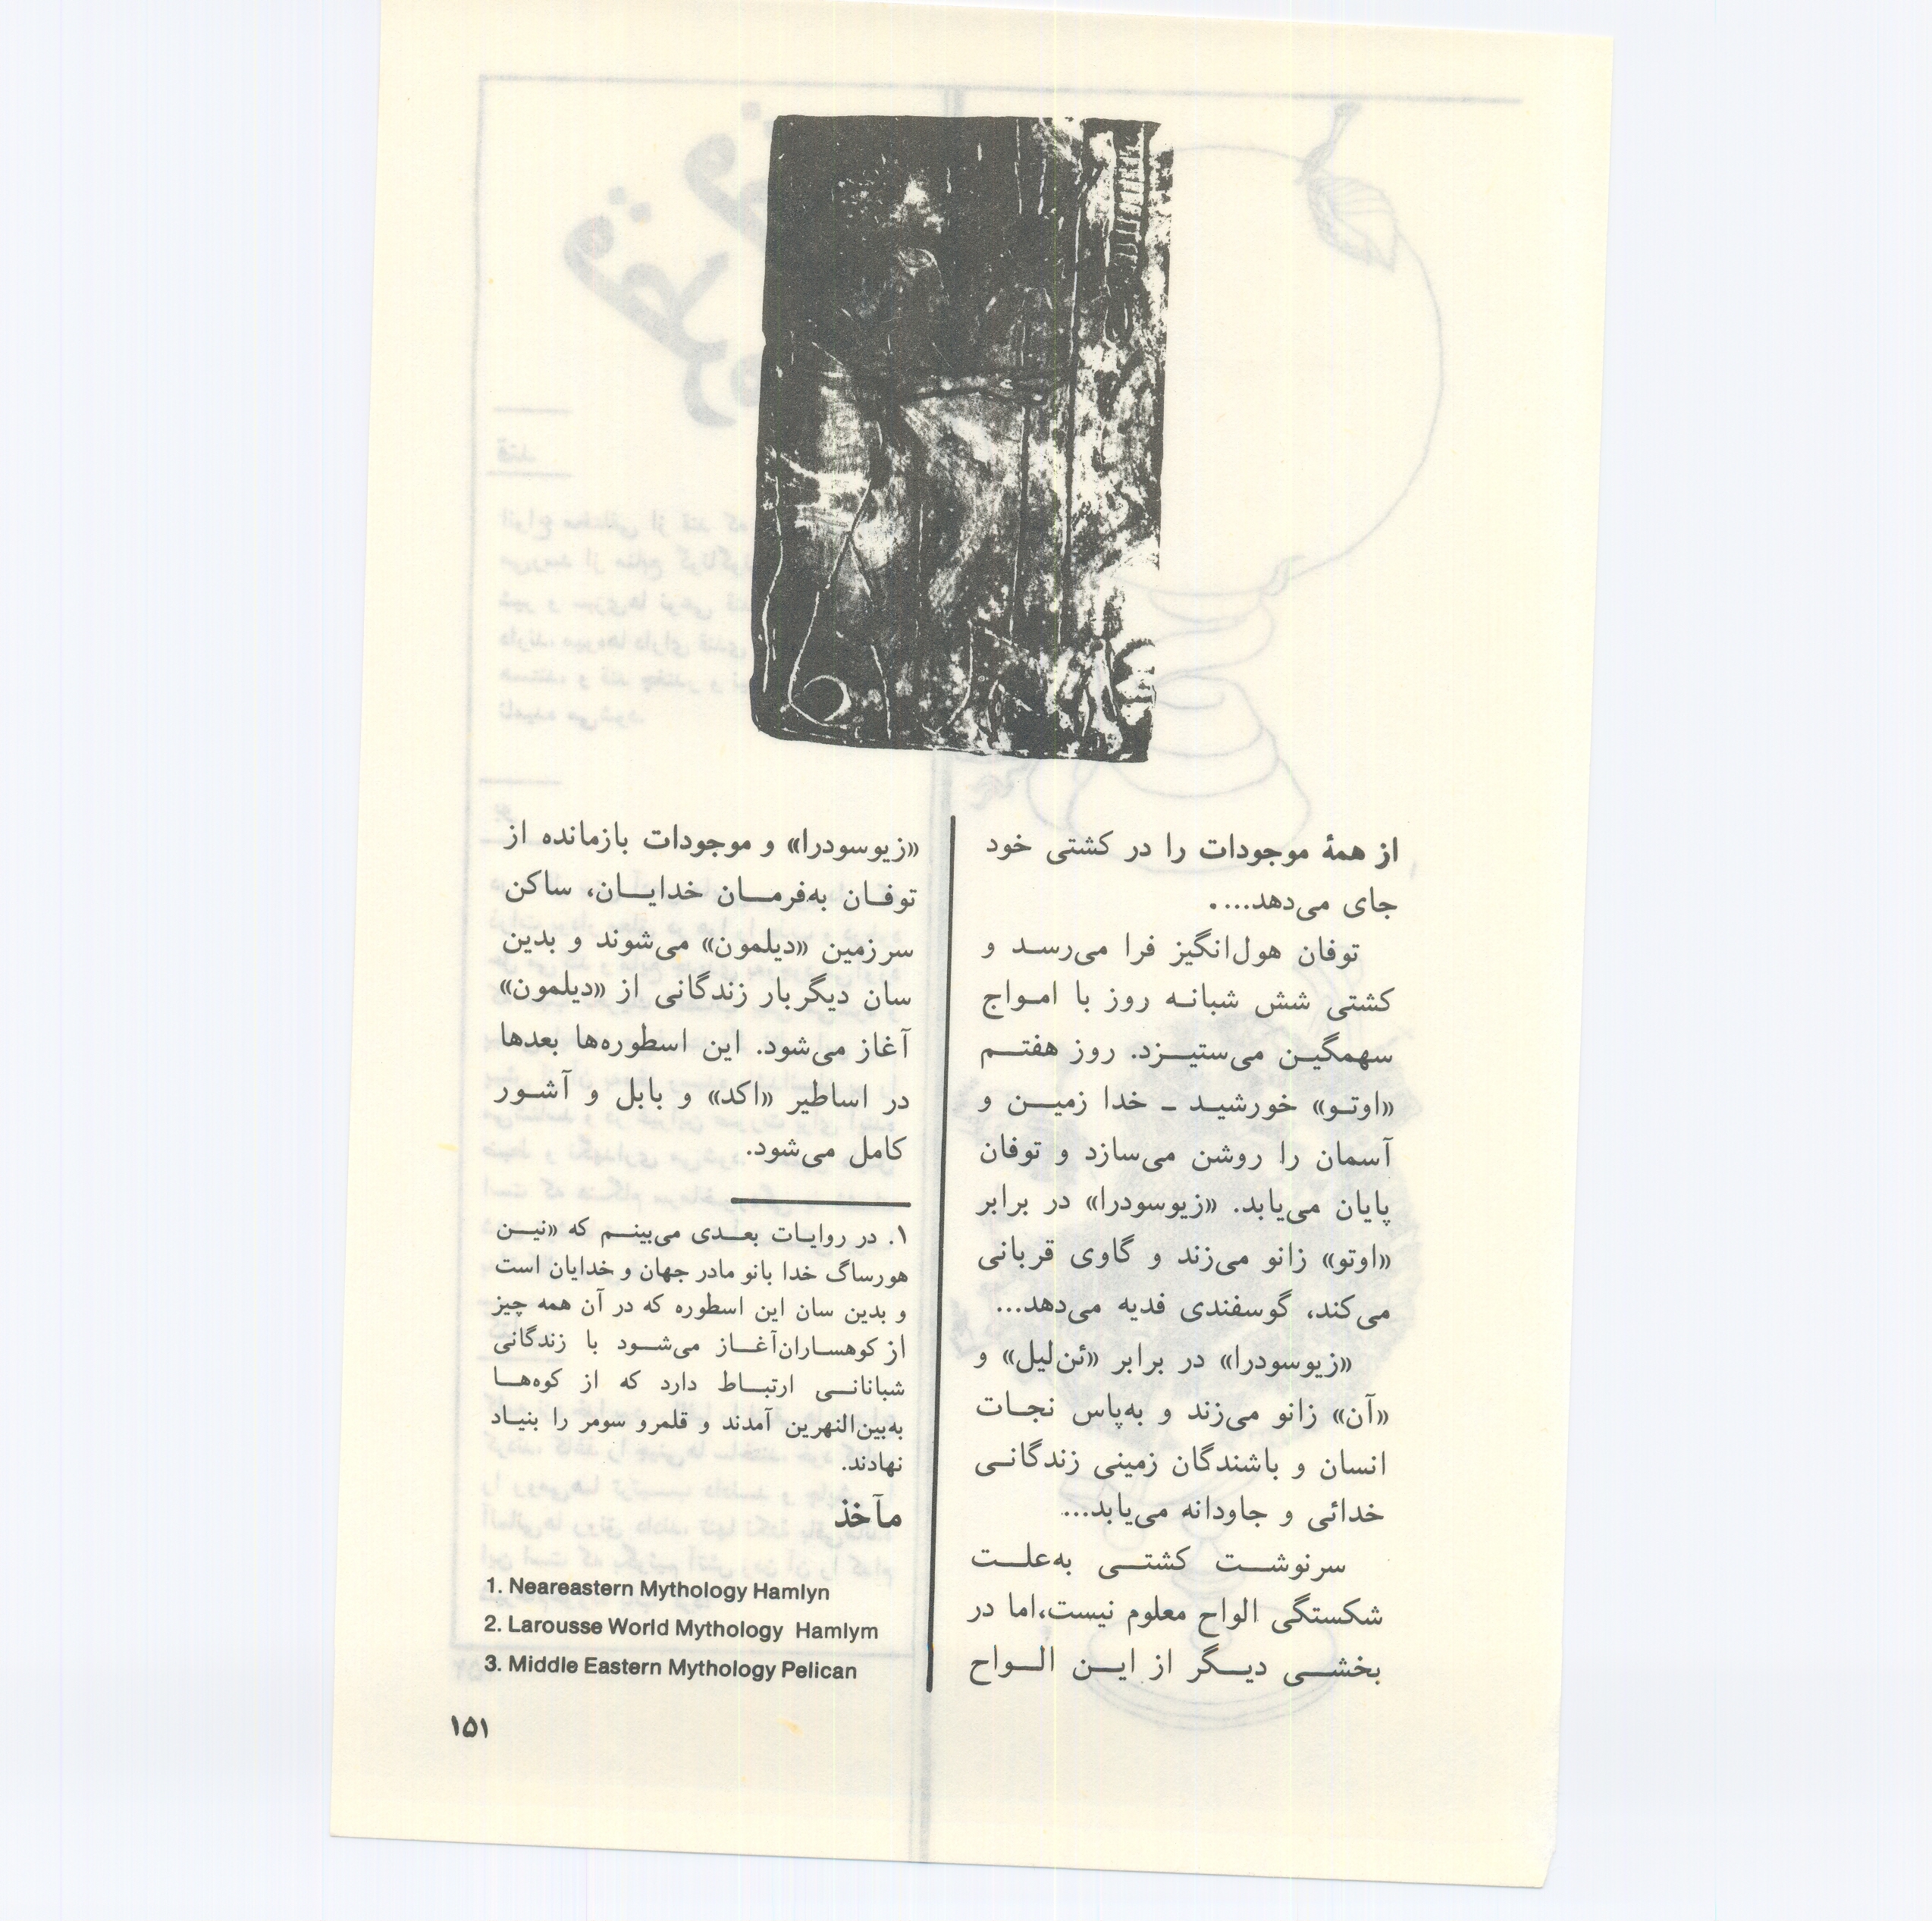 از همهٔ موجودات را در کشتی خود
جای می‌دهد....
توفان هول‌انگیز فرا می‌رسد و
کشتی شش شبانه روز با امواج
سهمگین می‌ستیزد. روز هفتم
«اوتو» خورشید ـ خدا زمین و
آسمان را روشن می‌سازد و توفان
پایان می‌یابد. «زیوسودرا» در برابر
«اوتو» زانو می‌زند و گاوی قربانی
می‌کند، گوسفندی فدیه می‌دهد...
«زیوسودرا» در برابر «ئن‌لیل» و
«آن» زانو می‌زند و به‌پاس نجات
انسان و باشندگان زمینی زندگانی
خدائی و جاودانه می‌یابد...
سرنوشت کشتی به‌علت
شکستگی الواح معلوم نیست،اما در
بخشی دیگر از این الواح
«زیوسودرا» و موجودات بازمانده از
توفان به‌فرمان خدایان، ساکن
سرزمین «دیلمون» می‌شوند و بدین
سان دیگربار زندگانی از «دیلمون»
آغاز می‌شود. این اسطوره‌ها بعدها
در اساطیر «اکد» و بابل و آشور
کامل می‌شود.
۱. در روایات بعدی می‌بینم که «نین
هورساگ خدا بانو مادر جهان و خدایان است
و بدین سان این اسطوره که در آن همه چیز
از کوهساران‌آغاز می‌شود با زندگانی
شبانانی ارتباط دارد که از کوه‌ها
به‌بین‌النهرین آمدند و قلمرو سومر را بنیاد
نهادند.
مآخذ
1. Neareastern Mythology Hamlyn
2. Larousse World Mythology Hamlym
3. Middle Eastern Mythology Pelican
۱۵۱